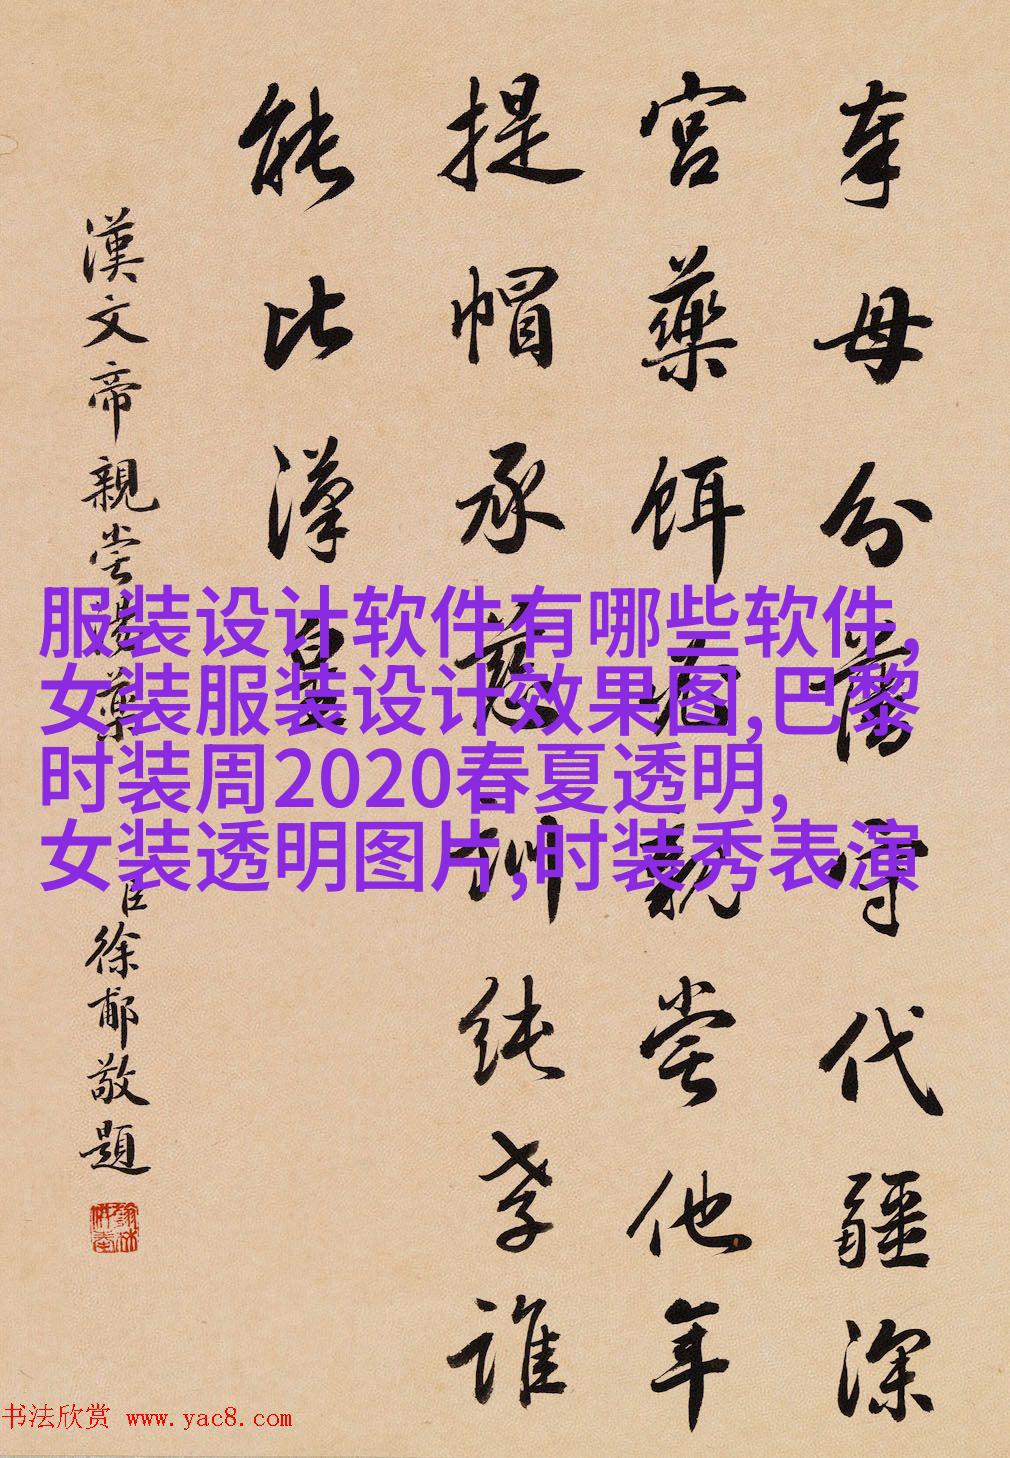 奉母分藩守代疆深
宮藥餌必親嘗他年
提帽承慈訓純孝誰
能比漢皇
漢文帝親嘗湯藥
臣徐郙敬題
服装设计软件有哪些软件,
女装服装设计效果图,巴黎
时装周2020春夏透明,
女装透明图片,时装秀表演
书法欣赏 www.yac8.com